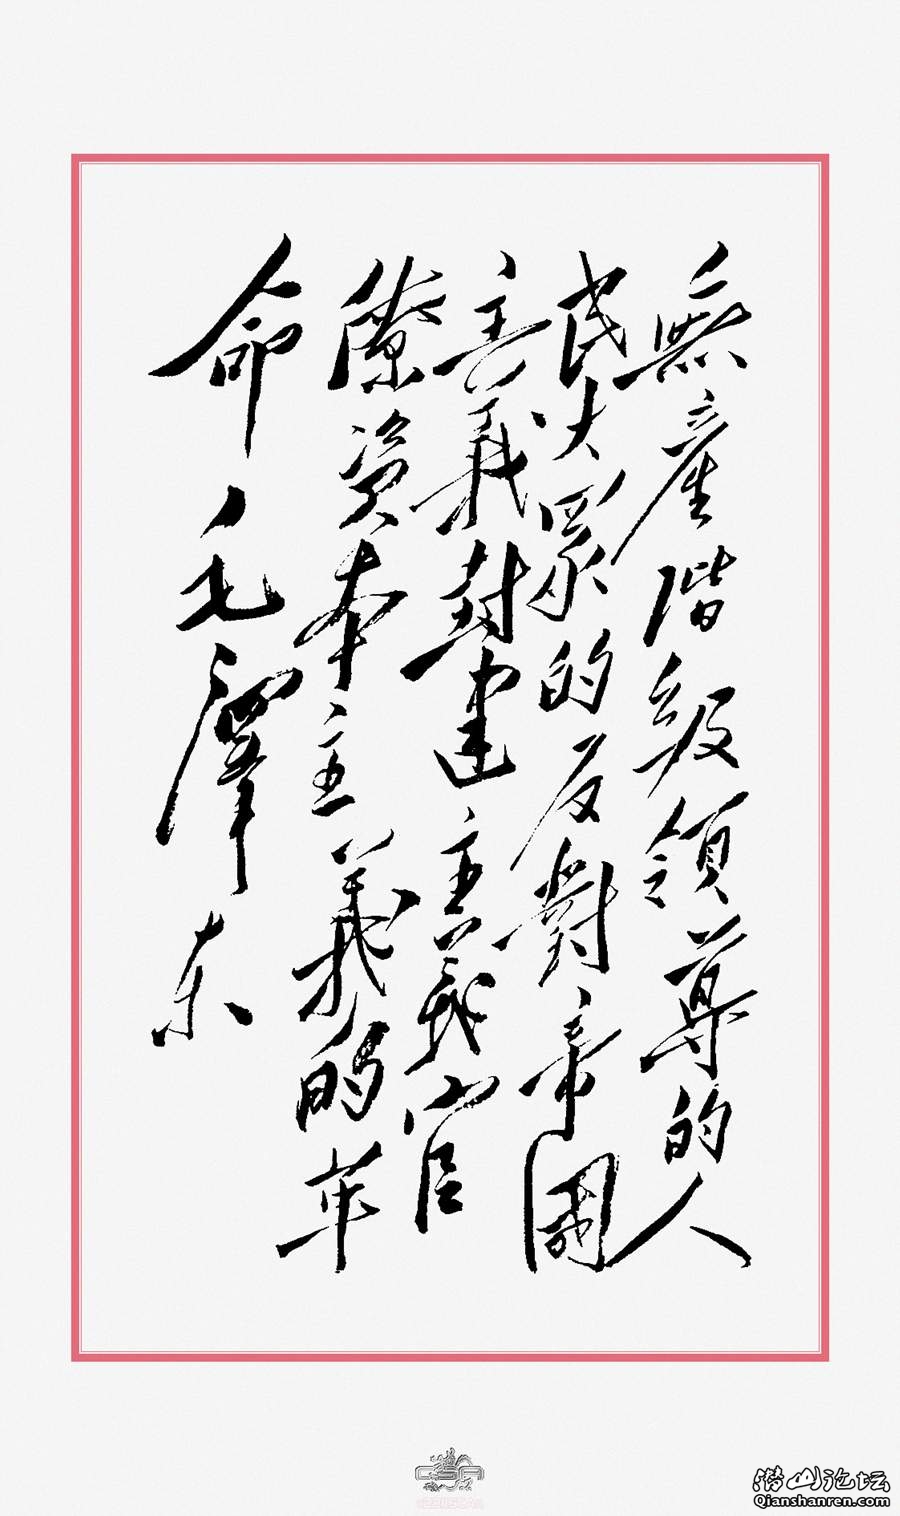 無產階级領導的人
民大眾的反對帝國
主義封建主義官
僚資本主義的革
命 毛澤东
潜山论坛
Qianshanren.com